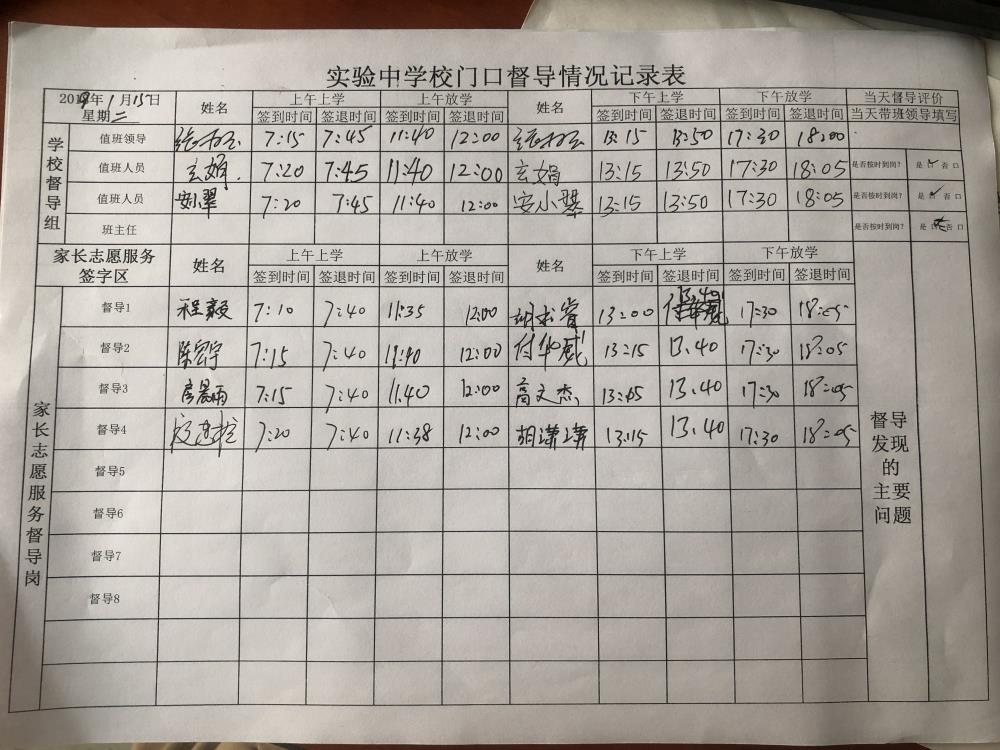 实验中学校门口督导情况记录表
2019年1月15日 星期二 姓名 上午上学 上午放学 姓名 下午上学 下午放学 当天督导评价
签到时间 签退时间 签到时间 签退时间 签到时间 签退时间 签到时间 签退时间 当天带班领导填写
学校督导组
值班领导 7:15 7:45 11:40 12:00 13:15 13:50 17:30 18:00
值班人员 玄娟 7:20 7:45 11:40 12:00 玄娟 13:15 13:50 17:30 18:05 是否按时到岗? 是 否
值班人员 安小翠 7:20 7:45 11:40 12:00 安小翠 13:15 13:50 17:30 18:05 是否按时到岗? 是 否
班主任 是否按时到岗? 是 否
家长志愿服务签字区 姓名 上午上学 上午放学 姓名 下午上学 下午放学
签到时间 签退时间 签到时间 签退时间 签到时间 签退时间 签到时间 签退时间
家长志愿服务督导岗
督导1 程毅 7:10 7:40 11:35 12:00 13:00 13.40 17:30 18:05
督导2 7:15 7:40 11:40 12:00 付华威 13:15 13.40 17:30 18:05
督导3 房晨雨 7:15 7:40 11:40 12:00 高文杰 13:15 13.40 17:30 18:05
督导4 7:20 7:40 11:38 12:00 胡潇潇 13:15 13.40 17:30 18:05
督导5
督导6
督导7
督导8
督导
发现
的
主要
问题